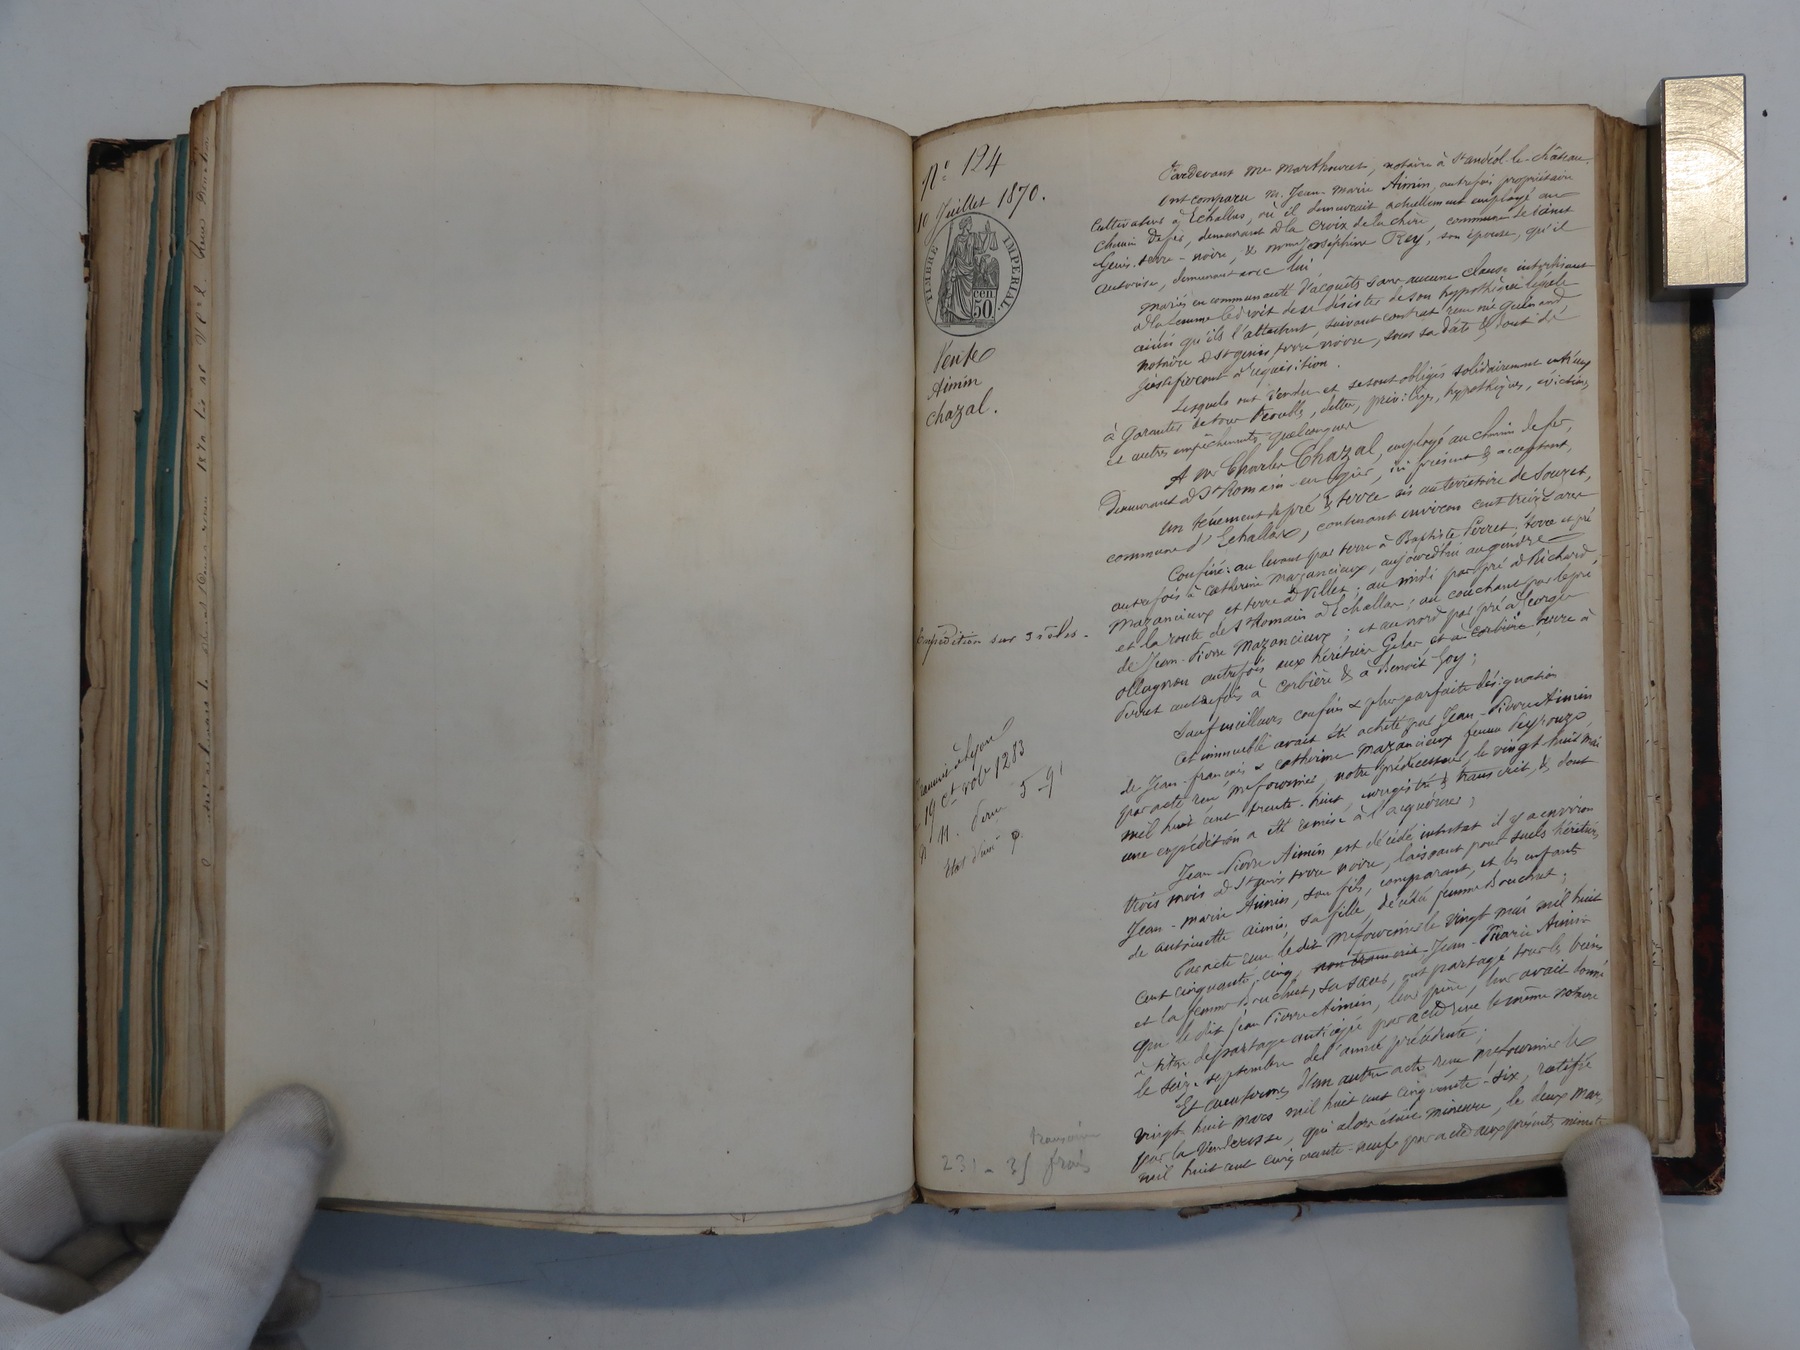 N° 124
10 Juillet 1870.
TIMBRE IMPERIAL.
50 cen
Vente
Aimin
Chazal.
Expédition sur 3 rôles.
à Lyon
19 ct vol 1283
n° 11.
Etat d'ins
transcrire
231 - 35 frais
Pardevant Me Marthouret, notaire à St andéol-le-château.
Ont comparu M. Jean-Marie Aimin, autrefois propriétaire
cultivateur à Echallas, où il demeurait actuellement employé au
chemin de fer, demeurant à la Croix de la , commune de saint
Genis-terre-noire, & Mme Joséphine Rey, son épouse, qu'il
autorise, demeurant avec lui
mariés en communauté d'acquêts sans aucune clause interdisant
à la femme le droit de se désister de son hypothèque légale
ainsi qu'ils l'attestent, suivant contrat reçu Me Guénand
notaire à St genis terre noire, sous sa date & dont ils
justifieront à réquisition.
Lesquels ont vendu et se sont obligés solidairement entr'eux
à garantir de tous troubles, dettes, privilèges, hypothèques, évictions
et autres empêchements quelconques
A Mr Charles Chazal, employé au chemin de fer,
demeurant à St Romain-en-Gier, ici présent & acceptant,
Un tènement de pré & terre sis au territoire de Souzet,
commune d'Echallas, contenant environ cent treize ares
Confiné: au levant par terre à Baptiste Perret; terre et pré
autrefois à Catherine Mazancieux, aujourd'hui au gendre
Mazancieux et terre à Villet; au midi par pré à Richard
et la route de St Romain à Echallas; au couchant par le pré
de Jean-Pierre Mazancieux; et au nord par pré à George
Ollagnon autrefois aux héritiers Gelas et à corbière terre à
Perret autrefois à Corbière & à Benoit Goy;
Sauf meilleurs confins & plus parfaite désignation
Cet immeuble avait été acheté par Jean-Pierre Aimin
de Jean-françois & Catherine Mazancieux femme Peyrouze,
par acte reçu Me fournier, notre prédécesseur, le vingt huit mai
mil huit cent trente-huit, enregistré & transcrit, & dont
une expédition a été remise à l'acquéreur;
Jean-Pierre Aimin est décédé intestat il y a environ
trois mois à St genis terre noire, laissant pour seuls héritiers
Jean-marie Aimin, son fils, comparant, et les enfants
de antoinette aimin, sa fille, décédée femme Bouchut;
Par acte reçu le dit Me fournier le vingt mai mil huit
cent cinquante-cinq, non transcrit Jean-Marie Aimin
et la femme Bouchut, sa sœur, ont partagé tous les biens
que le dit Jean Pierre Aimin, leur père, leur avait donné
à titre de partage anticipé par acte reçu le même notaire
le seize septembre de l'année précédente;
Et aux termes d'un autre acte reçu Me fournier le
vingt huit mars mil huit cent cinquante-six, ratifié
par la venderesse, qui alors était mineure, le deux mars
mil huit cent cinquante-neuf par acte aux présentes minutes